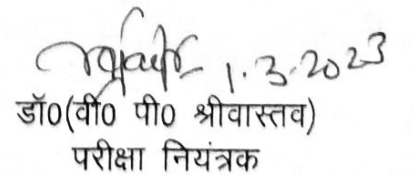 1.3.2023
डॉ0(वी0 पी0 श्रीवास्तव)
परीक्षा नियंत्रक